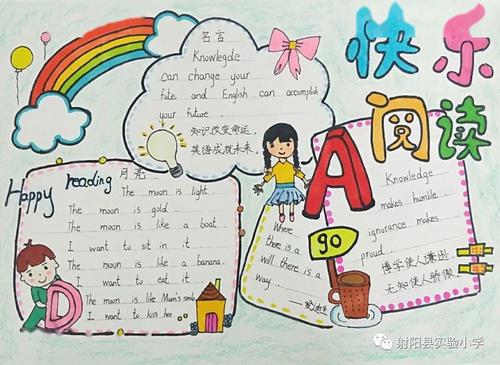 名言
Knowlegde
can change your
fate and English can accomplish
your future.
知识改变命运,
英语成就未来.
快乐
阅读
Happy reading
月亮
The moon is light.
The moon is gold.
The moon is like a boat.
I want to sit in it.
The moon is like a banana.
I want to eat it.
The moon is like Mum's smile
I want to kiss her.
D
A
go
Where
there is a
will there is a
way.
Knowledge
makes humble,
ignorance makes
proud.
博学使人谦逊
无知使人骄傲
射阳县实验小学